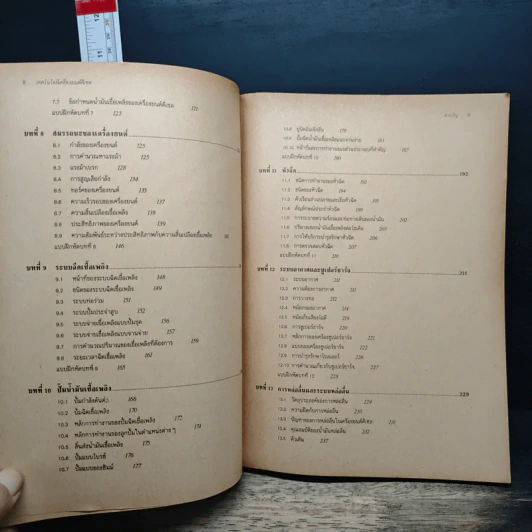 8 เทคโนโลยีเครื่องยนต์ดีเซล
7.7 ข้อกำหนดน้ำมันเชื้อเพลิงของเครื่องยนต์ดีเซล 121
แบบฝึกหัดบทที่ 7 123
บทที่ 8 สมรรถนะของเครื่องยนต์
8.1 กำลังของเครื่องยนต์ 125
8.2 การคำนวณหาแรงม้า
8.3 แรงม้าเบรก 128
8.4 การสูญเสียกำลัง 134
8.5 ทอร์คของเครื่องยนต์ 135
8.6 ความเร็วรอบของเครื่องยนต์ 137
8.7 ความสิ้นเปลืองเชื้อเพลิง 138
8.8 ประสิทธิภาพของเครื่องยนต์ 139
8.9 ความสัมพันธ์ระหว่างประสิทธิภาพกับความสิ้นเปลืองเชื้อเพลิง
แบบฝึกหัดบทที่ 8 146
บทที่ 9 ระบบฉีดเชื้อเพลิง
9.1 หน้าที่ของระบบฉีดเชื้อเพลิง 148
9.2 ชนิดของระบบฉีดเชื้อเพลิง 149
9.3 ระบบท่อร่วม 151
9.4 ระบบปั๊มประจำสูบ 152
9.5 ระบบจ่ายเชื้อเพลิงแบบปั๊มชุด 156
9.6 ระบบจ่ายเชื้อเพลิงแบบจานจ่าย 157
9.7 การคำนวณปริมาณของเชื้อเพลิงที่ต้องการ 159
9.8 ระยะเวลาฉีดเชื้อเพลิง 161
แบบฝึกหัดบทที่ 9 165
บทที่ 10 ปั๊มน้ำมันเชื้อเพลิง
10.1 ปั๊มกำลังดันต่ำ 166
10.2 ปั๊มฉีดเชื้อเพลิง 170
10.3 หลักการทำงานของปั๊มฉีดเชื้อเพลิง 172
10.4 หลักการทำงานของลูกปั๊มในตำแหน่งต่าง ๆ 174
10.5 ลิ้นส่งน้ำมันเชื้อเพลิง 175
10.6 ปั๊มแบบโบรซ์ 176
10.7 ปั๊มแบบของซิมม์ 177
สารบัญ 9
10.8 ยูนิตอินเจ็กชั่น 179
10.9 ปั๊มฉีดน้ำมันเชื้อเพลิงแบบจานจ่าย 181
10.10 187
แบบฝึกหัดบทที่ 10 190
บทที่ 11 หัวฉีด 192
11.1 ชนิดการทำงานของหัวฉีด 193
11.2 ชนิดของหัวฉีด 194
11.3 198
11.4 สัญลักษณ์ประจำหัวฉีด 199
11.5 การระบายความร้อนและท่อทางเดินของน้ำมัน 202
11.6 207
11.7 การให้บริการบำรุงรักษาหัวฉีด
11.8 การตรวจสอบหัวฉีด
แบบฝึกหัดบทที่ 11
บทที่ 12 ระบบอากาศและซูเปอร์ชาร์จ 211
12.1 ระบบอากาศ 211
12.2 ความต้องการอากาศ 211
12.3 การวางท่อ 212
12.4 หม้อกรองอากาศ
12.5 หม้อเก็บเสียงไอดี
12.6 การซูเปอร์ชาร์จ 219
12.7 หลักการของเครื่องซูเปอร์ชาร์จ 221
12.8 แบบของเครื่องซูเปอร์ชาร์จ 222
12.9 การบำรุงรักษาโบลเวอร์
12.10 การคำนวณเกี่ยวกับซูเปอร์ชาร์จ 225
แบบฝึกหัดบทที่ 12 228
บทที่ 13 การหล่อลื่นและระบบหล่อลื่น 229
13.1 วัตถุประสงค์ของการหล่อลื่น
13.2 ความฝืดกับการหล่อลื่น
13.3 ปัญหาของการหล่อลื่นในเครื่องยนต์ดีเซล 231
13.4 คุณสมบัติของน้ำมันหล่อลื่น 232
13.5 237